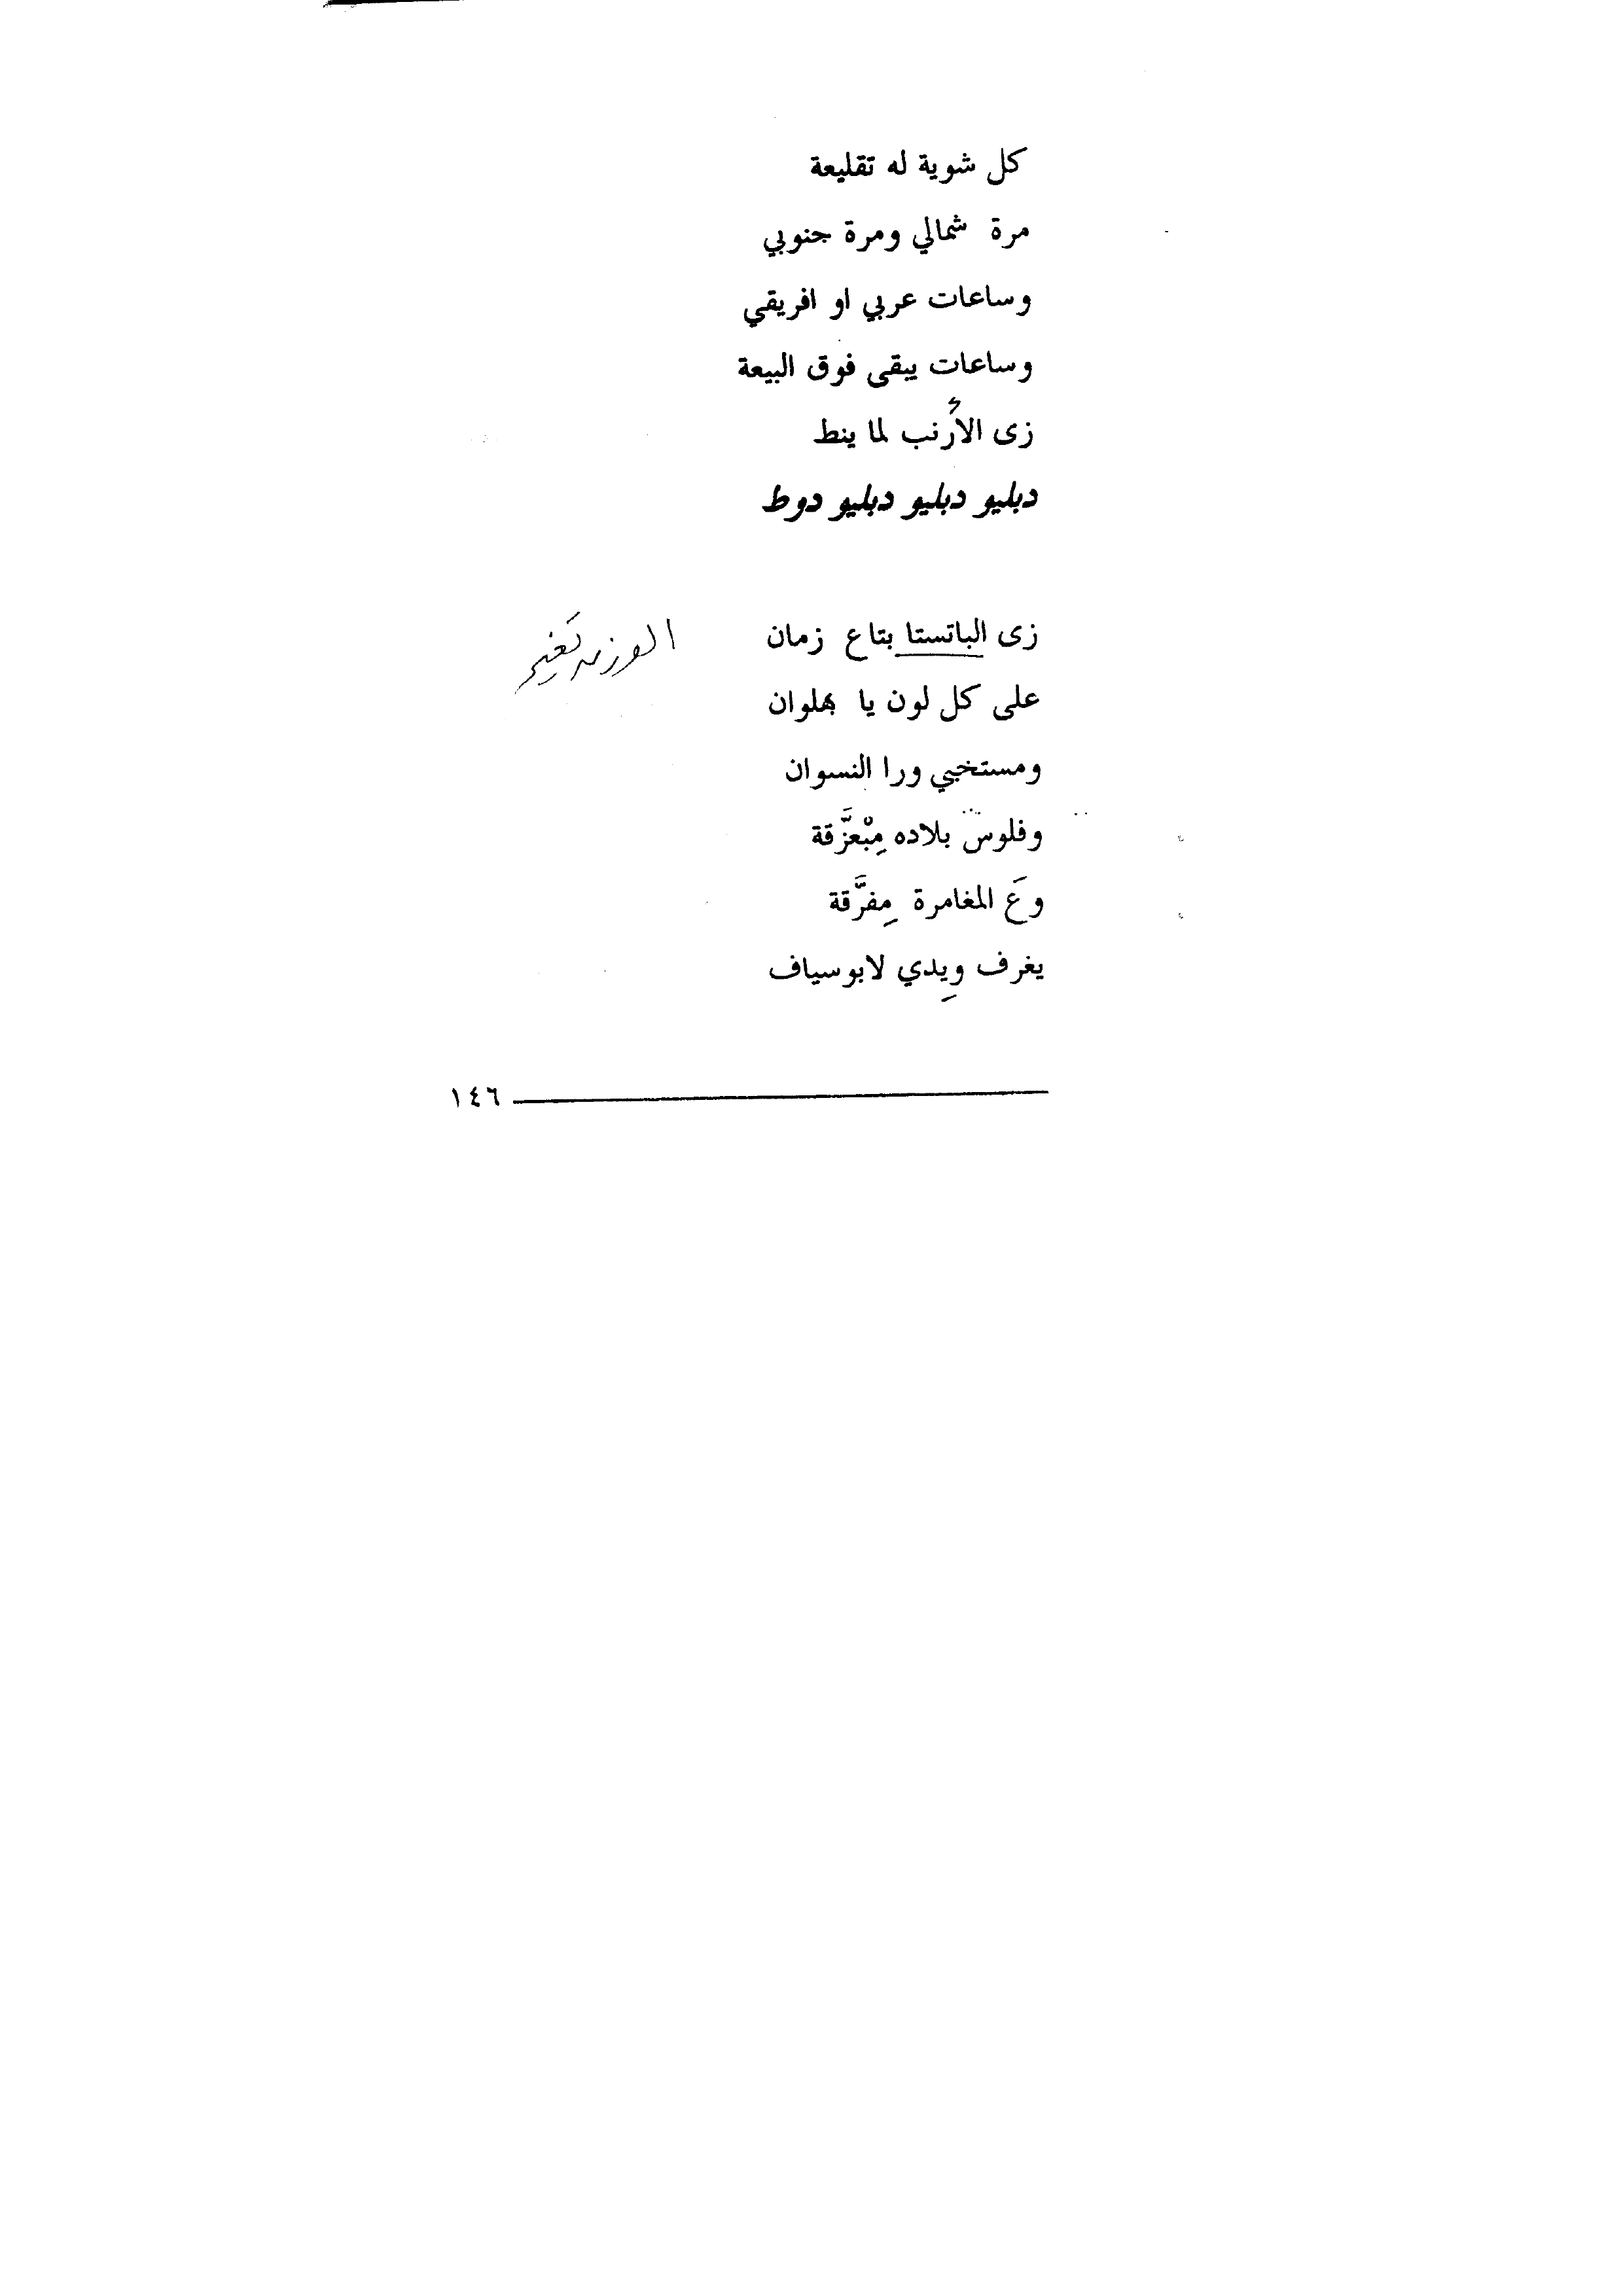 كل شوية له تقليعة
مرة شمالي ومرة جنوبي
وساعات عربي او افريقي
وساعات يبقى فوق البيعة
زى الأرنب لما ينط
دبليو دبليو دبليو دوط
زى الباتستا بتاع زمان
الوزن تغير
على كل لون يا بهلوان
ومستخبي ورا النسوان
وفلوس بلاده مِبْعزَّقة
وعَ المغامرة مِفرَّقة
يغرف ويِدي لابوسياف
١٤٦